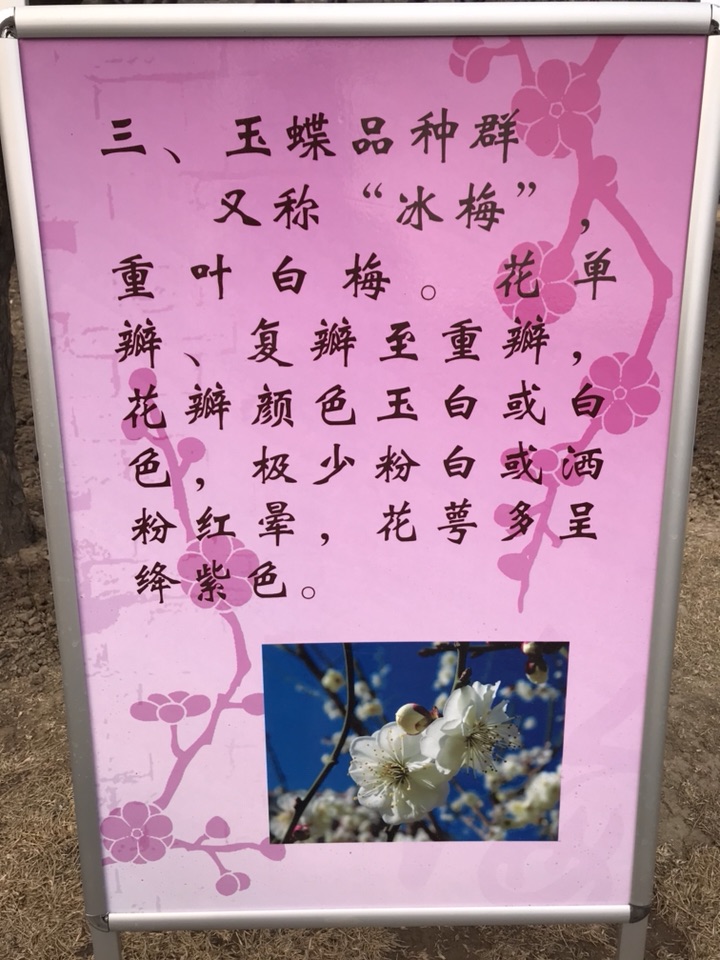 三、玉蝶品种群
又称“冰梅”,
重叶白梅。花单
瓣、复瓣至重瓣,
花瓣颜色玉白或白
色,极少粉白或洒
粉红晕,花萼多呈
绛紫色。